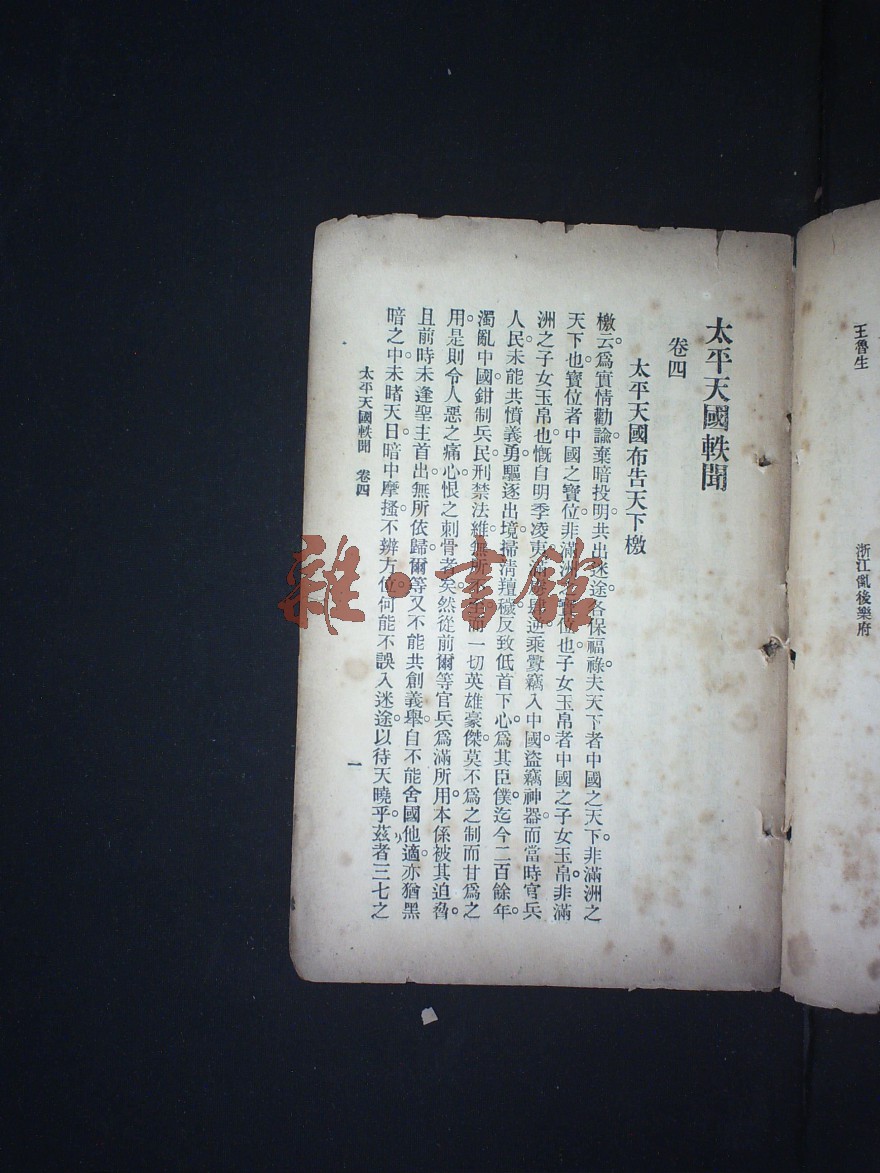 王魯生
浙江亂後樂府
太平天國軼聞
卷四
太平天國布告天下檄
檄云。爲實情勸諭。棄暗投明。共出迷途。各保福祿。夫天下者中國之天下。非滿洲之
天下也。寶位者中國之寶位。非滿洲之寶位也。子女玉帛者中國之子女玉帛。非滿
洲之子女玉帛也。慨自明季凌夷。逆乘釁竊入中國。盜竊神器。而當時官兵
人民。未能共憤義勇。驅逐出境。掃淸羶穢。反致低首下心。爲其臣僕。迄今二百餘年。
濁亂中國。鉗制兵民。刑禁法維。無所不而一切英雄豪傑。莫不爲之制而甘爲之
用。是則令人惡之痛心。恨之刺骨者矣。然從前爾等官兵爲滿所用。本係被其迫脅。
且前時未逢聖主首出。無所依歸。爾等又不能共創義舉。自不能舍國他適。亦猶黑
暗之中。未睹天日。暗中摩搔。不辨方位。何能不誤入迷途。以待天曉乎。茲者三七之
太平天國軼聞 卷四
一
雜·書館